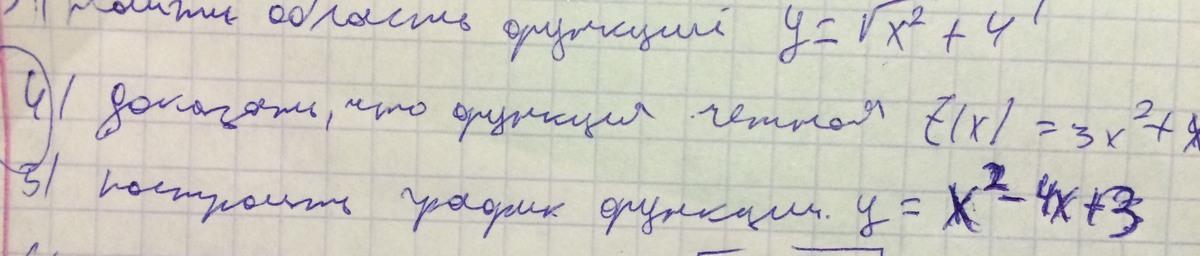 найти область функций y = √x² + 4
4) доказать, что функция четная f(x) = 3x² +
5) построить график функции. y = x² - 4x + 3